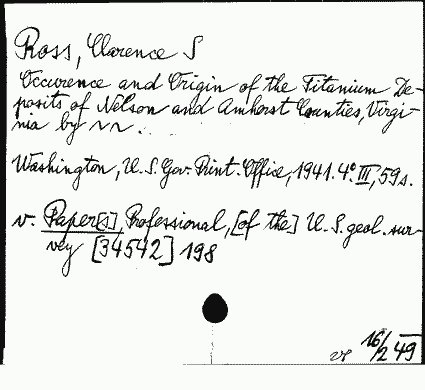 Ross, Clarence S
Occurence and Origin of the Titanium De-
posits of Nelson and Amherst Counties, Virgi-
nia by
Washington, U.S. Gov. Print. Office, 1941. 4° III, 59 s.
v. Paper[s], Professional, [of the] U.S. geol. sur-
vey [34542] 198
16/2 49